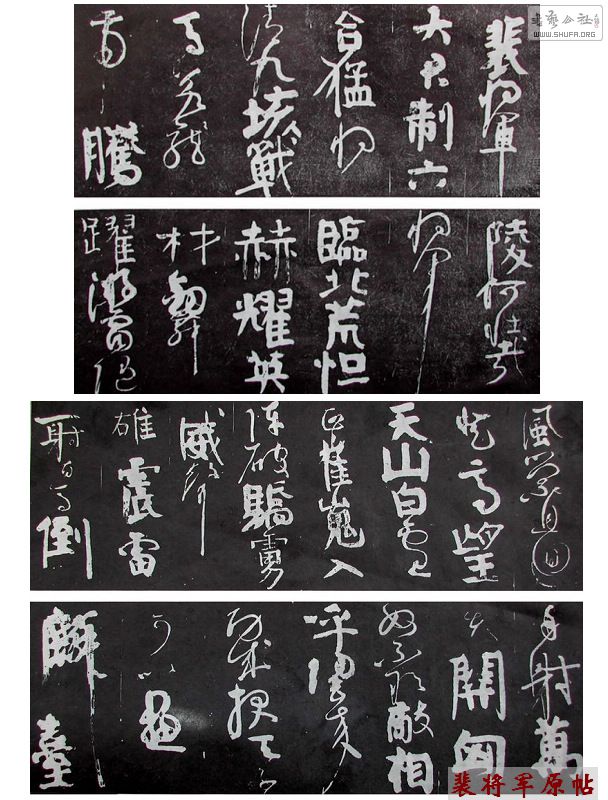 書藝公社
WWW.SHUFA.ORG
裴將軍
大君制六
合猛將
清九垓戰
馬若龍
虎騰
陵何壯哉
將軍
臨北荒烜
赫耀英
材劍舞
躍游電隨
風縈且回
登高望
天山白雲
正崔嵬入
陣破驕虜
威聲
雄震雷
射百馬倒
再射萬
夫開匈
奴不敢敵相
呼歸去來
功成報天子
可以畫
麟臺
裴将军原帖